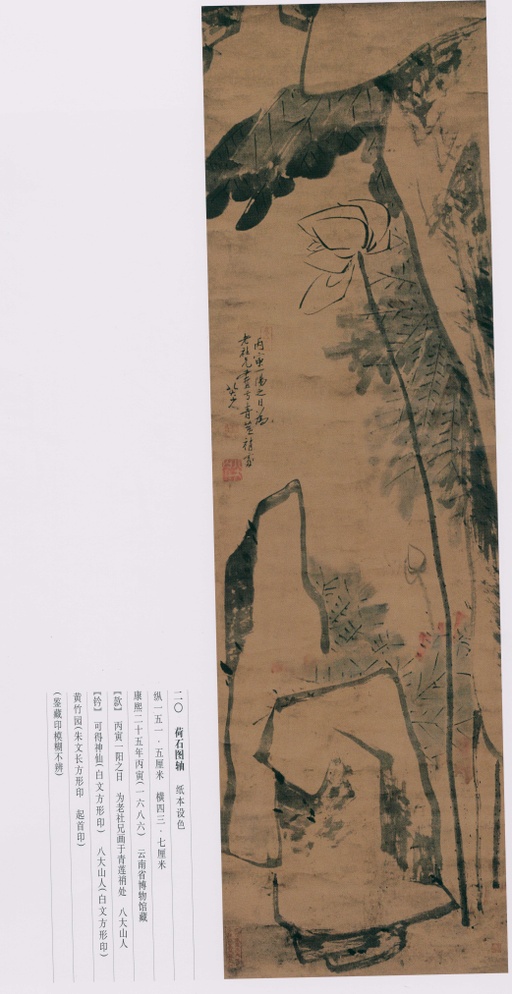 丙寅一阳之日为
老社兄画于青莲
八大山人
二〇 荷石图轴 纸本设色
纵一五一·五厘米 横四三·七厘米
康熙二十五年丙寅(一六八六) 云南省博物馆藏
[款] 丙寅一阳之日 为老社兄画于青莲禙处 八大山人
[钤] 可得神仙(白文方形印) 八大山人(白文方形印)
黄竹园(朱文长方形印 起首印)
(鉴藏印模糊不辨)